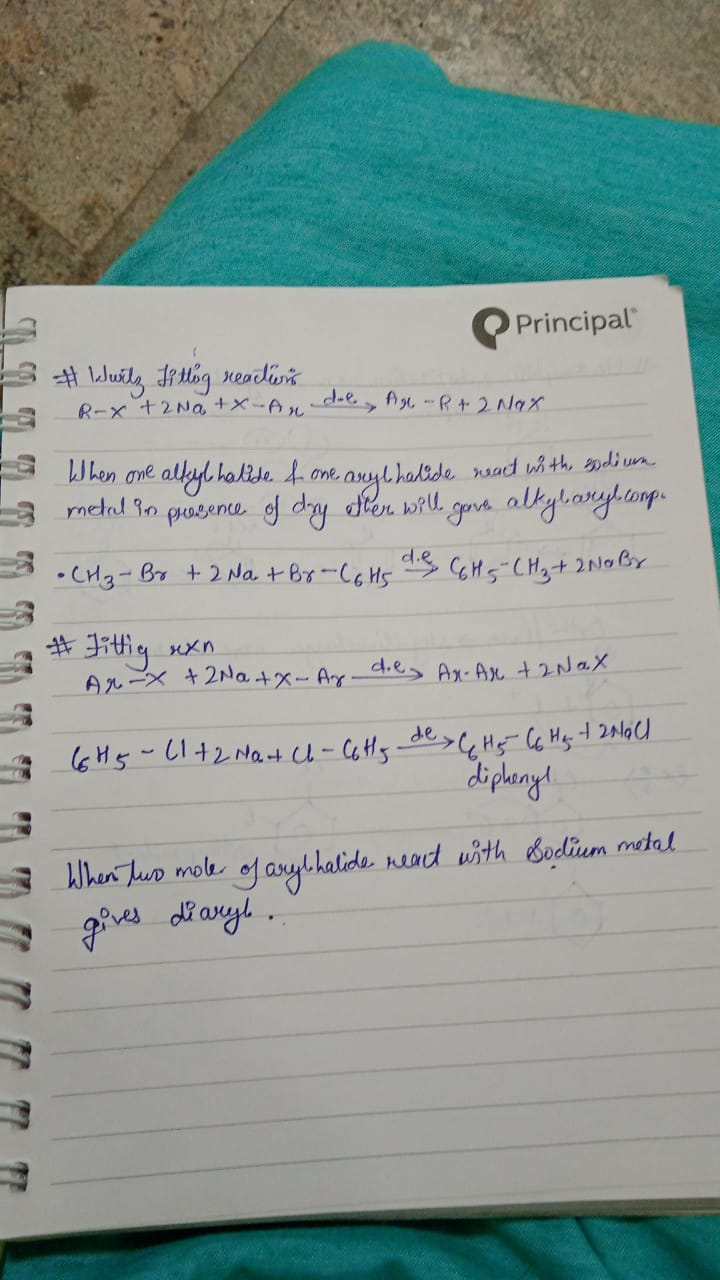 Principal®
# Wurtz fittig reaction
R-X + 2Na + X-Ar d.e → Ar-R + 2NaX
When one alkyl halide & one aryl halide react with sodium
metal in presence of dry ether will gave alkylaryl comp.
• CH3-Br + 2Na + Br-C6H5 d.e → C6H5-CH3 + 2NaBr
# Fittig rxn
Ar-X + 2Na + X-Ar d.e → Ar-Ar + 2NaX
C6H5-Cl + 2Na + Cl-C6H5 de → C6H5-C6H5 + 2NaCl
diphenyl
When Two mole of aryl halide react with Sodium metal
gives diaryl.